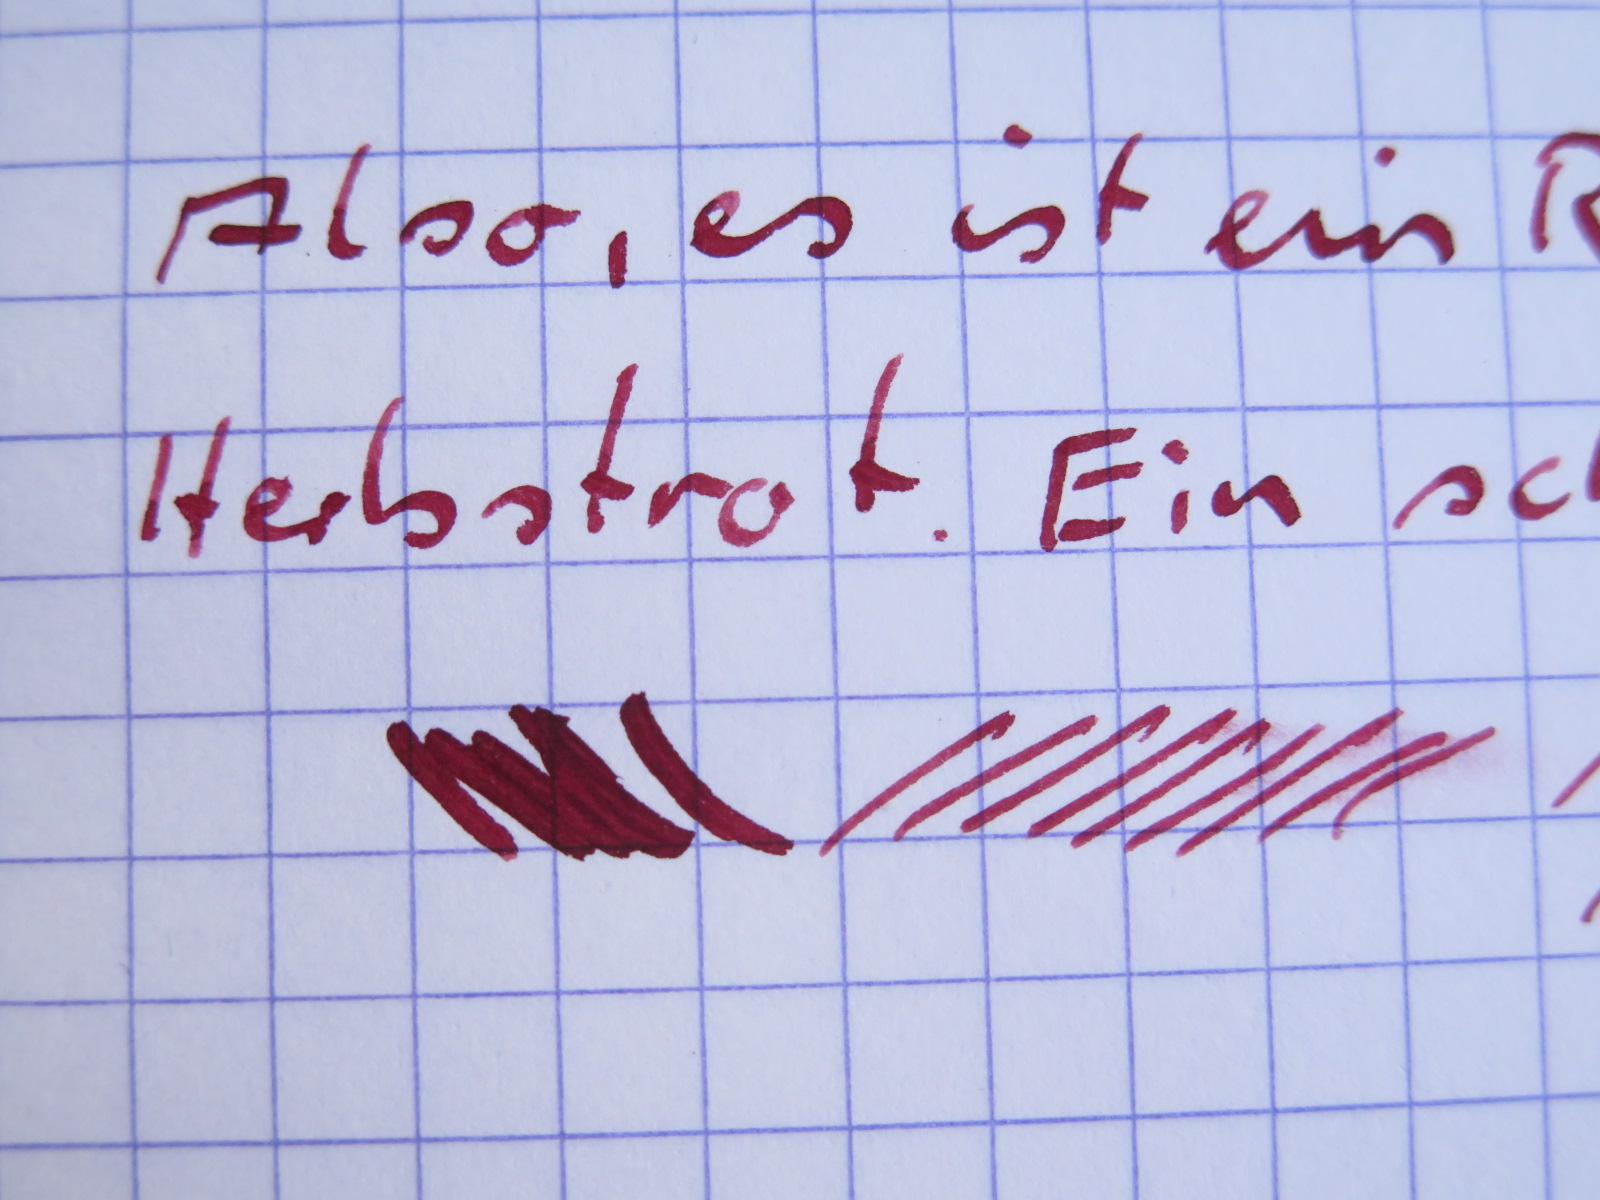 Also, es ist ein R
Herbstrot. Ein sc